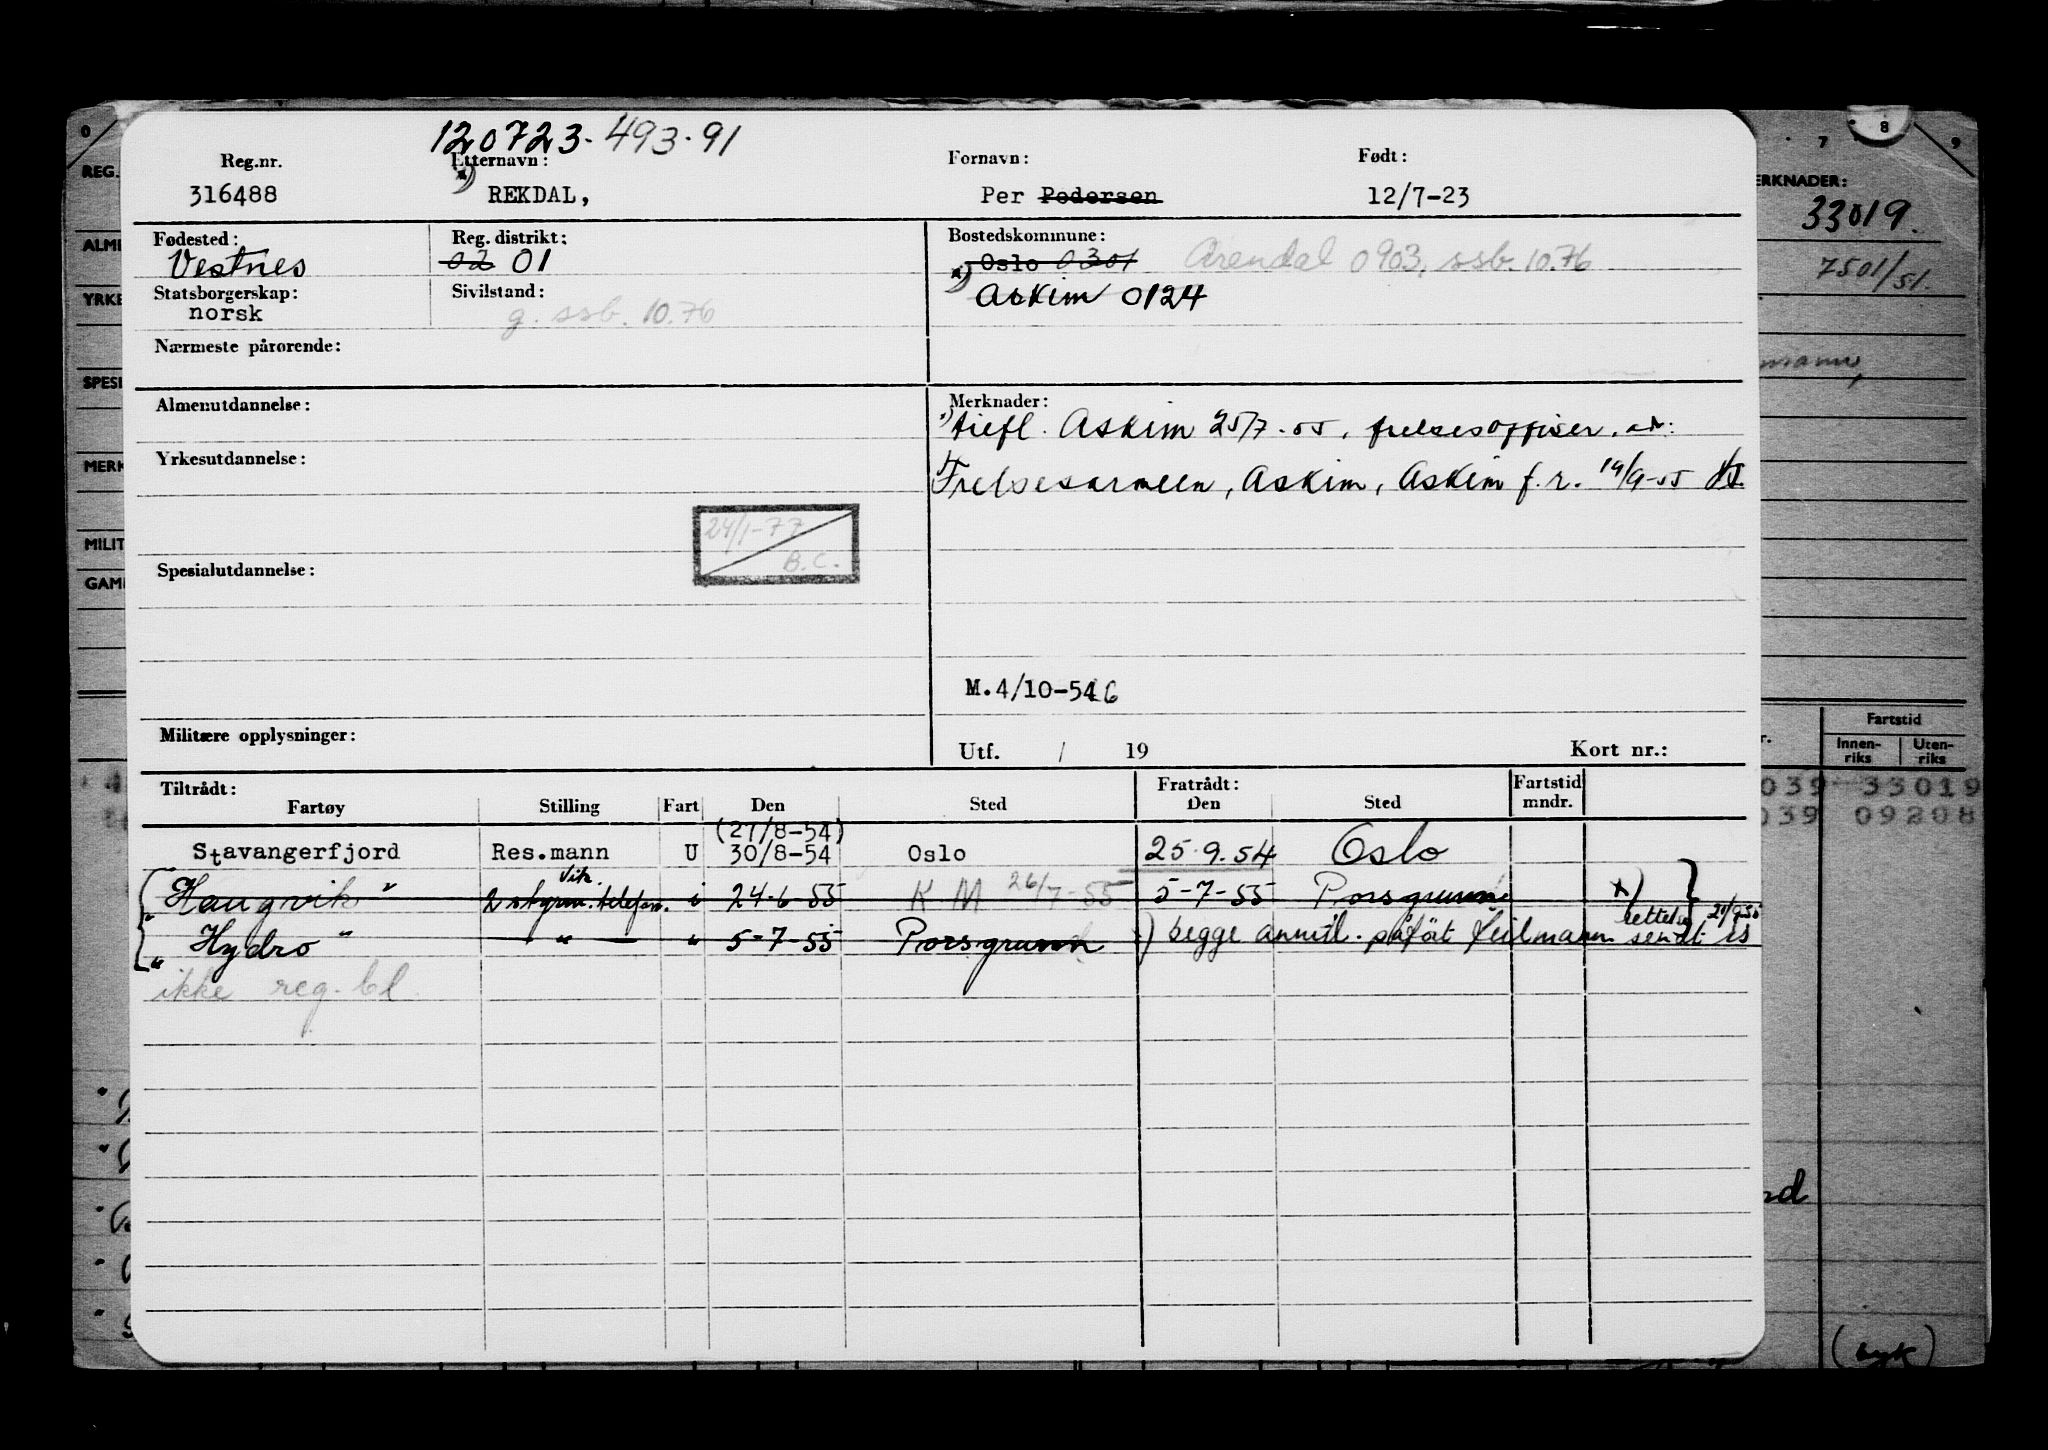 120723-493-91
Reg.nr. Etternavn: Fornavn: Født:
316488 *) REKDAL, Per Pedersen 12/7-23
Fødested: Reg. distrikt: Bostedskommune:
Vestnes 02 01 Oslo 0301 Arendal 0903, ssb. 10.76
Statsborgerskap: Sivilstand: *) Askim 0124
norsk g. ssb. 10.76
Nærmeste pårørende:
Almenutdannelse: Merknader:
*) tilfl. Askim 25/7-55, frelsesoffiser, adr:
Yrkesutdannelse:
Frelsesarmeen, Askim, Askim f.r. 19/9-55
24/1-77
B.C.
Spesialutdannelse:
M.4/10-54 G
Militære opplysninger:
Utf. / 19 Kort nr.:
Tiltrådt: Fratrådt: Fartstid
Fartøy Stilling Fart Den Sted Den Sted mndr.
(27/8-54)
Stavangerfjord Res.mann U 30/8-54 Oslo 25.9.54 Oslo
"Haugvik" 2 styrm. vik. telefon. i 24-6-55 K M 26/7-55 5-7-55 Porsgrunn *)
"Hydro" — " — " 5-7-55 Porsgrunn *) begge anmtl. påført feil mann rettelse sendt 21/9-55
ikke reg. bl.
0 7 8 9
REG.
ERKNADER:
33019.
ALME
7501/51.
YRKE
SPESI
MERK
MILIT
GAML
Fartstid
Innen-
riks
Uten-
riks
039 33019
039 09208